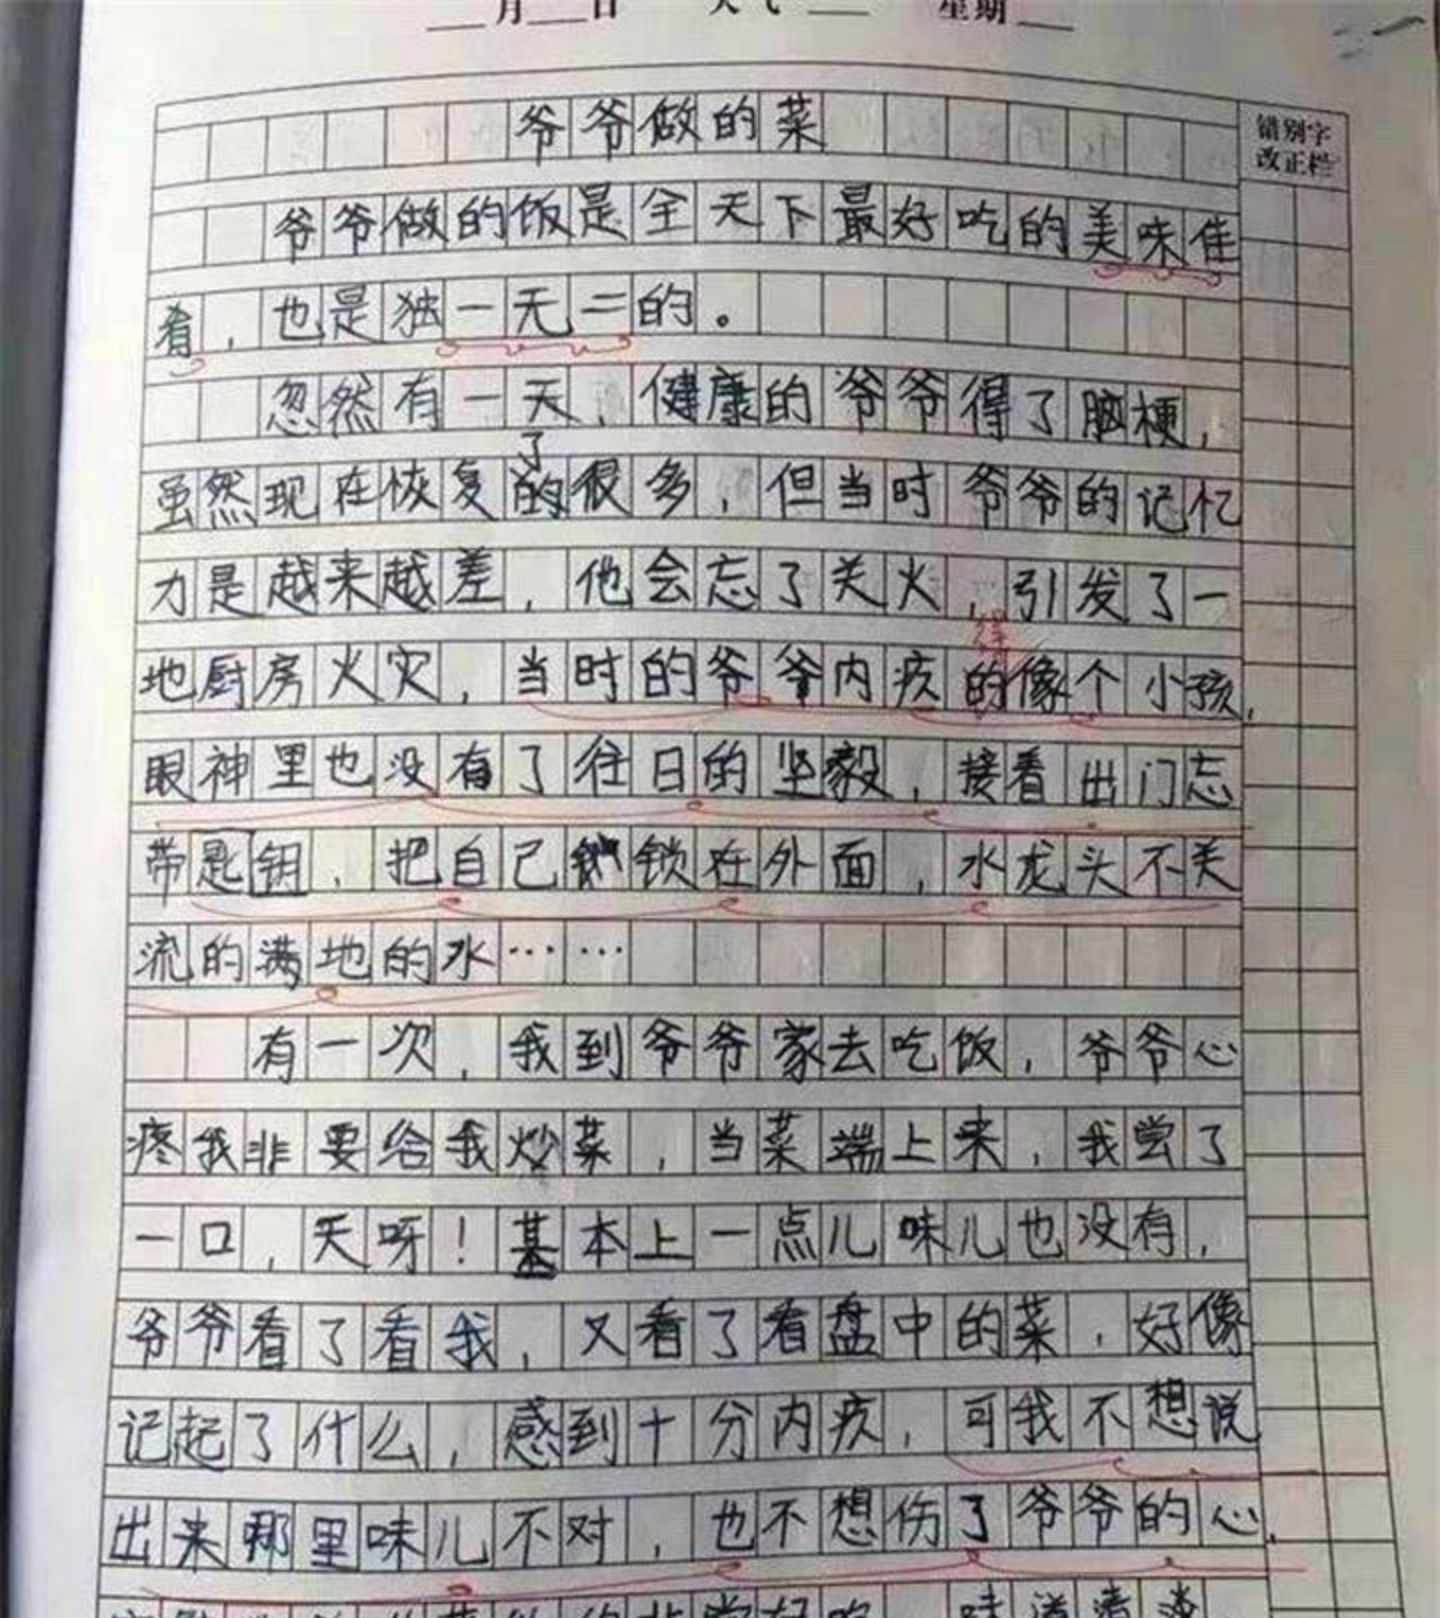 月 日 天气 星期
错别字
改正栏
爷爷做的菜
爷爷做的饭是全天下最好吃的美味佳
肴，也是独一无二的。
忽然有一天，健康的爷爷得了脑梗，
了
虽然现在恢复的很多，但当时爷爷的记忆
力是越来越差，他会忘了关火，引发了一
得
地厨房火灾，当时的爷爷内疚的像个小孩，
眼神里也没有了往日的坚毅，接着出门忘
带匙钥，把自己锁在外面，水龙头不关
流的满地的水……
有一次，我到爷爷家去吃饭，爷爷心
疼我非要给我炒菜，当菜端上来，我尝了
一口，天呀！基本上一点儿味儿也没有，
爷爷看了看我，又看了看盘中的菜，好像
记起了什么，感到十分内疚，可我不想说
出来那里味儿不对，也不想伤了爷爷的心，